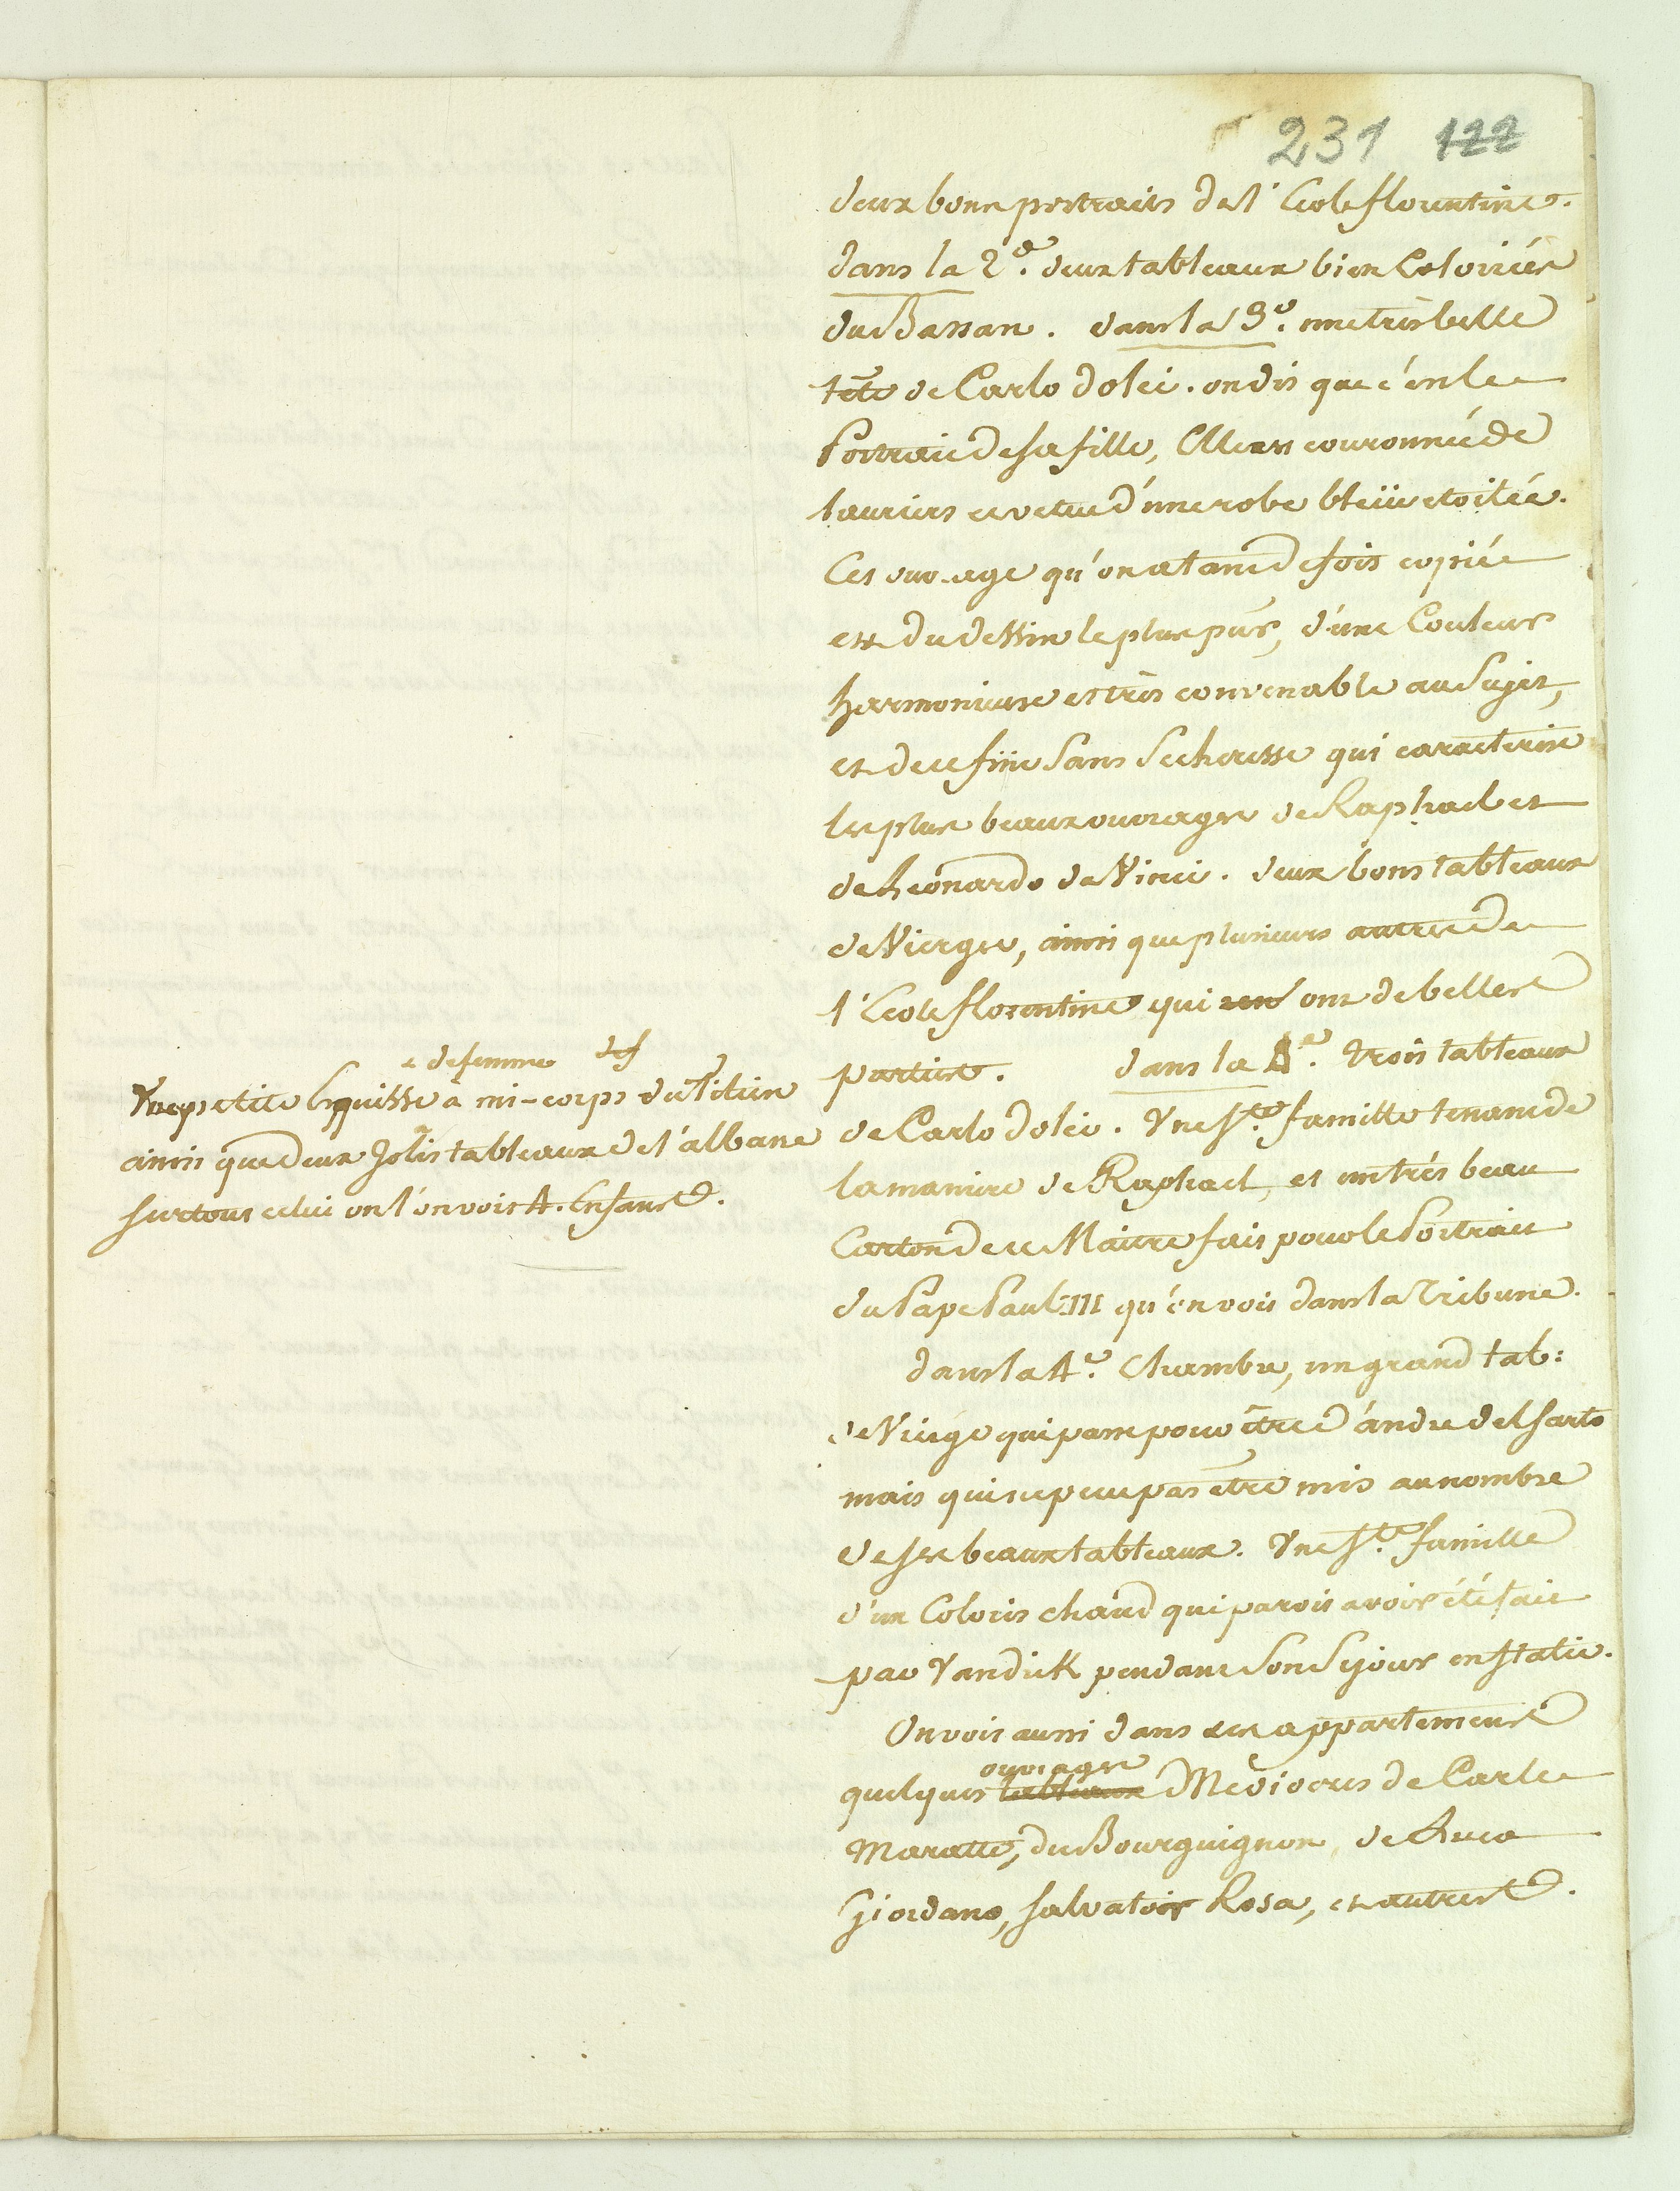 231 122
deux bons portraits de l'Ecole florentine.
dans la 2.e deux tableaux bien Coloriés
du Bassan. dans la 3.e une très belle
tête de Carlo dolci. on dit que c'est le
Portrait de sa fille, Elle est couronnée de
lauriers et vetue d'une robe bleüe etoilée.
Cet ouvrage qu'on a tant de fois copiée
est du dessin le plus pur, d'une Couleur
harmonieuse et très convenable au Sujet,
et de ce fini Sans Secheresse qui caracterise
les plus beaux ouvrages de Raphael et
de Leonardo da Vinci. deux bons tableaux
de Vierges, ainsi que plusieurs autres de
l'Ecole florentine qui ont de belles
parties. dans la 4.e trois tableaux
de Carlo dolci. Une S.te famille tenant de
la maniere de Raphael, et un très beau
Carton de ce Maitre fait pour le Portrait
du Pape Paul III qu'on voit dans la Tribune.
dans la 4.e Chambre, un grand tab:
de Vierge qui passe pour être d'andre del Sarto
mais qui ne peut pas être mis au nombre
de ses beaux tableaux. Une S.te famille
d'un Coloris chaud qui parois avoir été fait
par Vandick pendant Son Sejour en Italie.
On voit aussi dans ces appartements
ouvrages
quelques tableaux Mediocres de Carle
Maratte, du Bourguignon, de Luca
Giordano, Salvator Rosa, et autres.
de femme
Une petite Esquisse à mi-corps du Titien
ainsi que deux Jolis tableaux de l'albane
surtout celui ou l'on voit 4. Enfants.